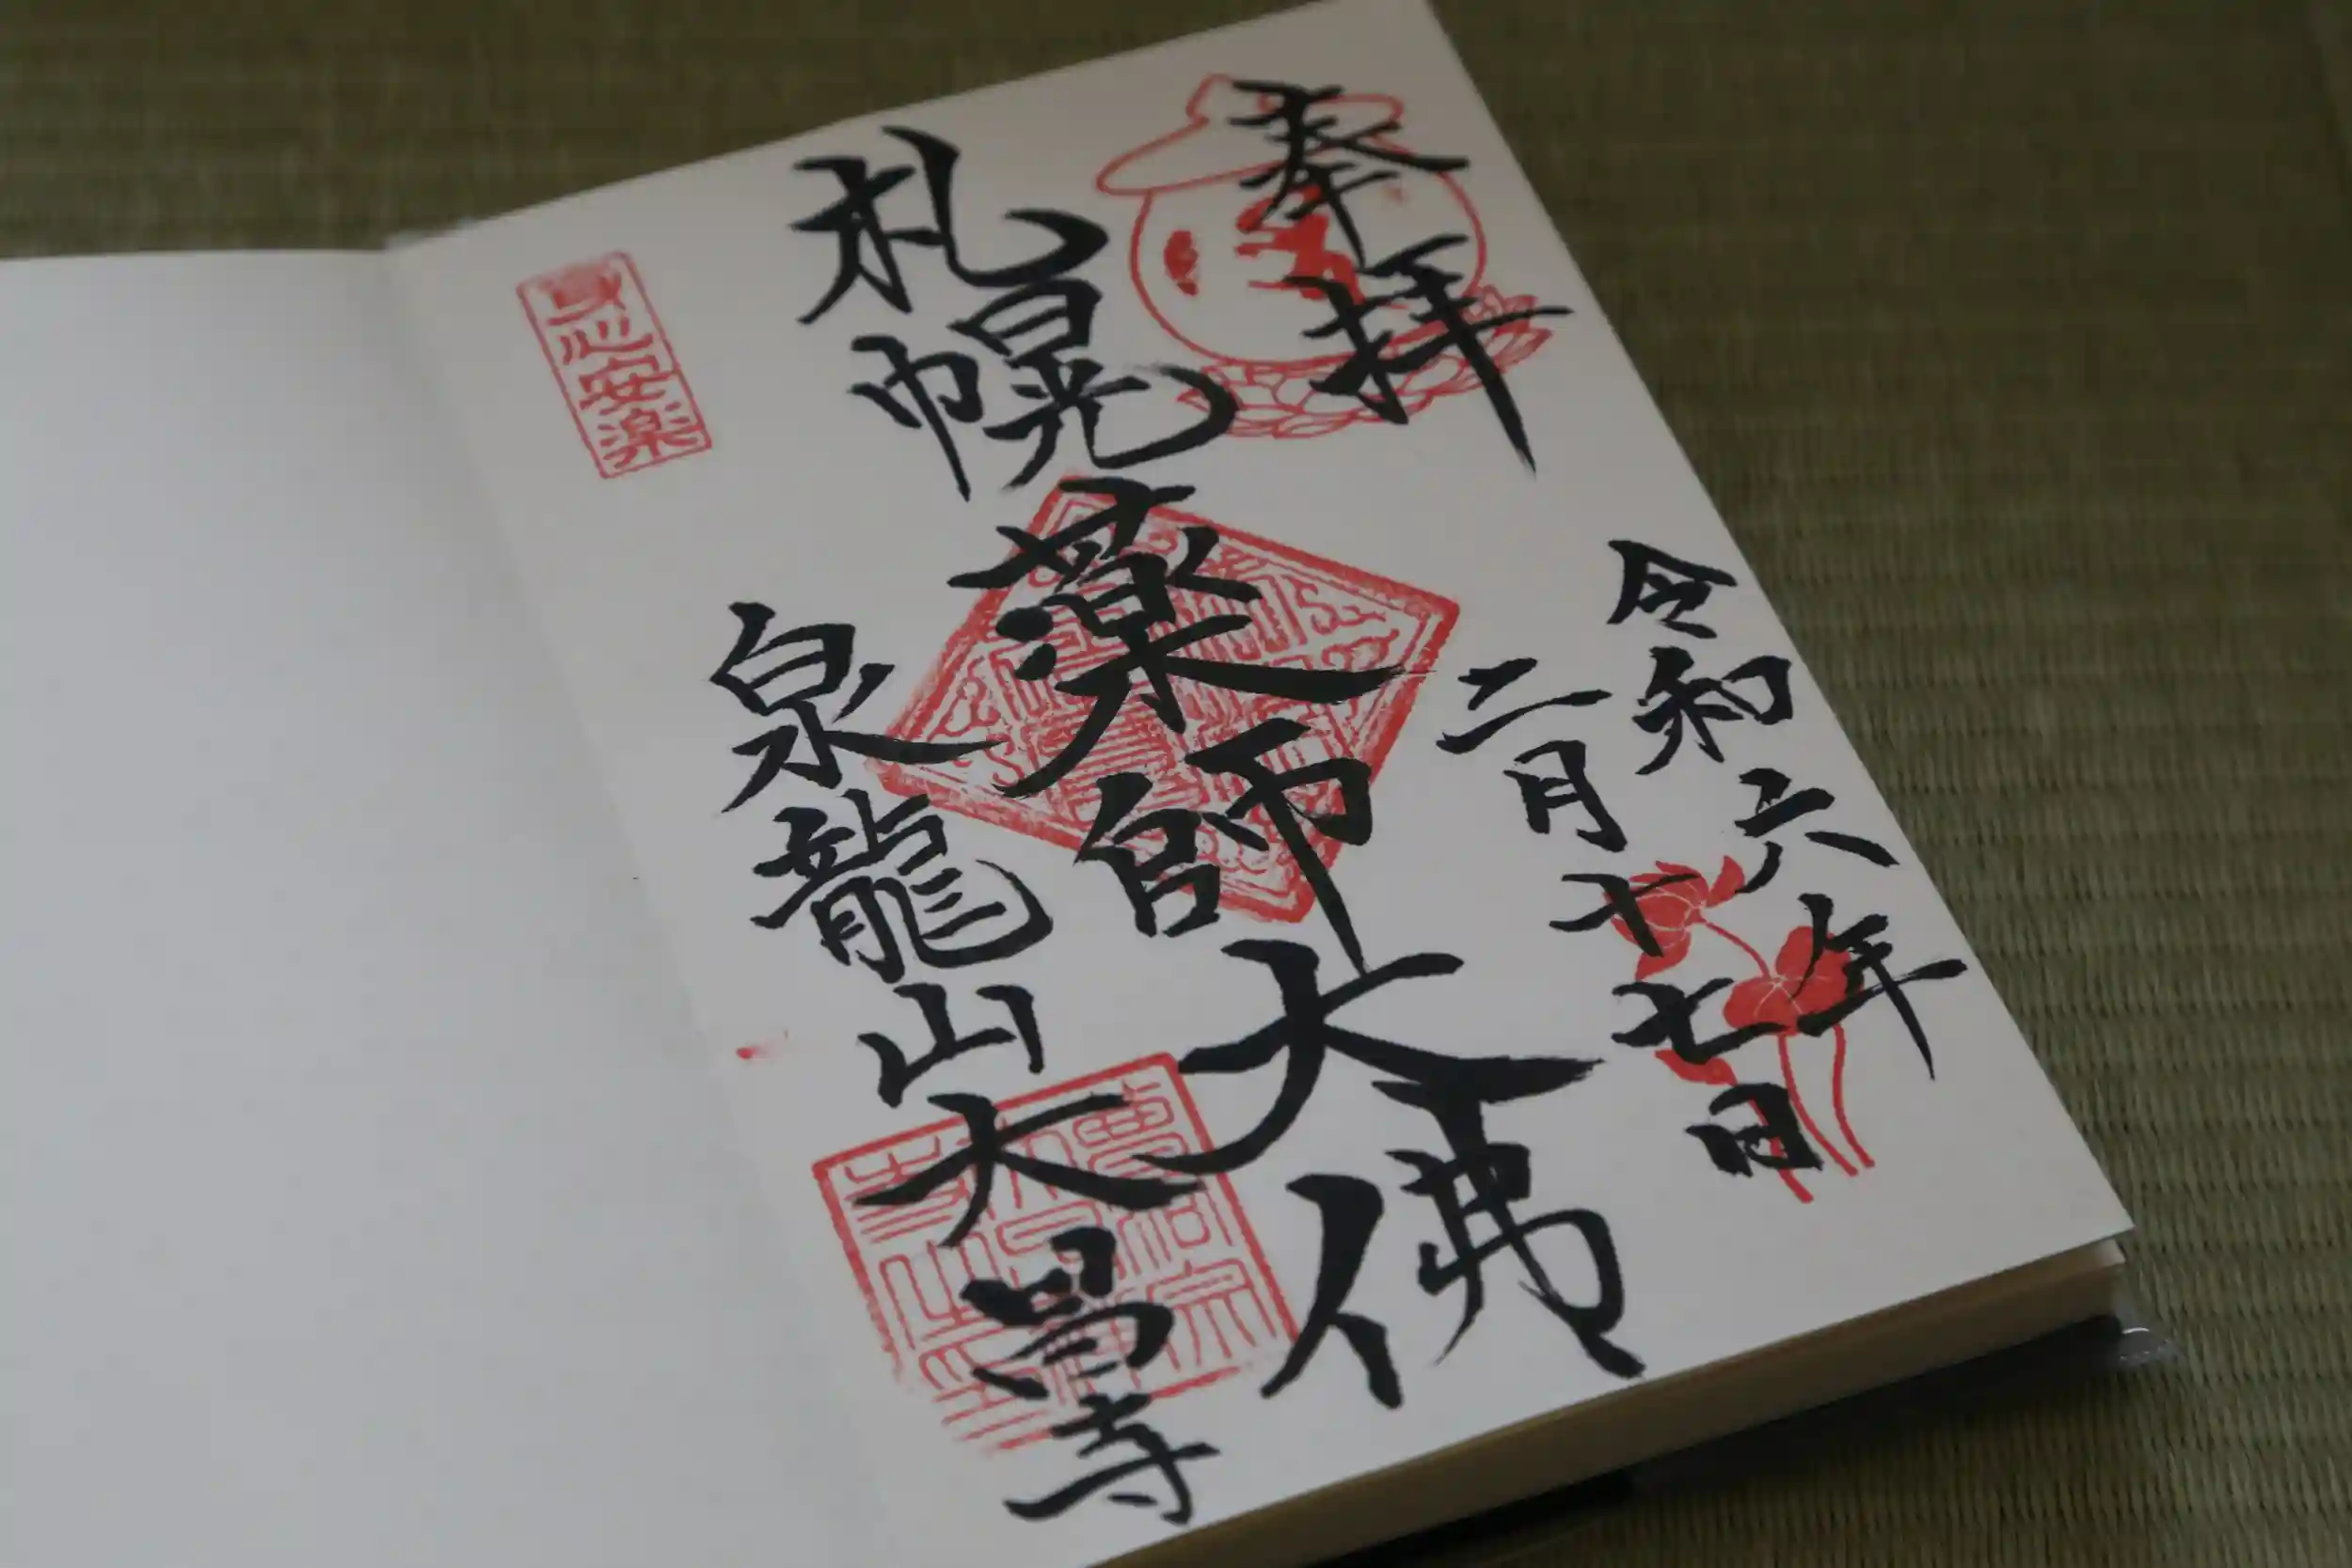 奉拝
令和六年
二月十七日
札幌薬師大佛
泉龍山大昌寺
安楽